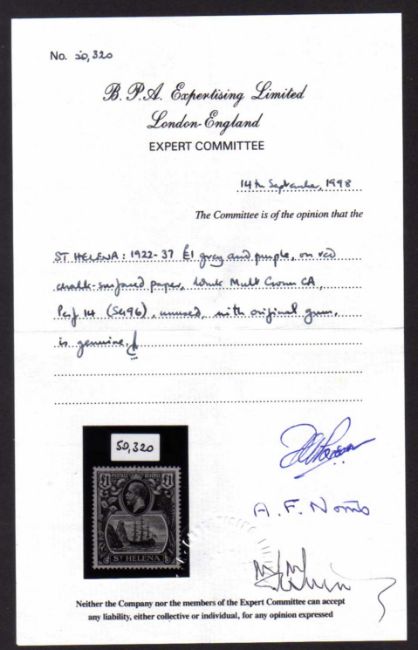 No. 50,320
B.P.A. Expertising Limited
London-England
EXPERT COMMITTEE
14th September, 1998
The Committee is of the opinion that the
ST HELENA: 1922-37 £1 grey and purple, on red
chalk-surfaced paper, wmk Mult Crown CA,
Perf 14 (SG96), unused, with original gum,
is genuine.
50,320
POSTAGE REVENUE
£1 £1
ST HELENA
A. F. Norris
Neither the Company nor the members of the Expert Committee can accept
any liability, either collective or individual, for any opinion expressed